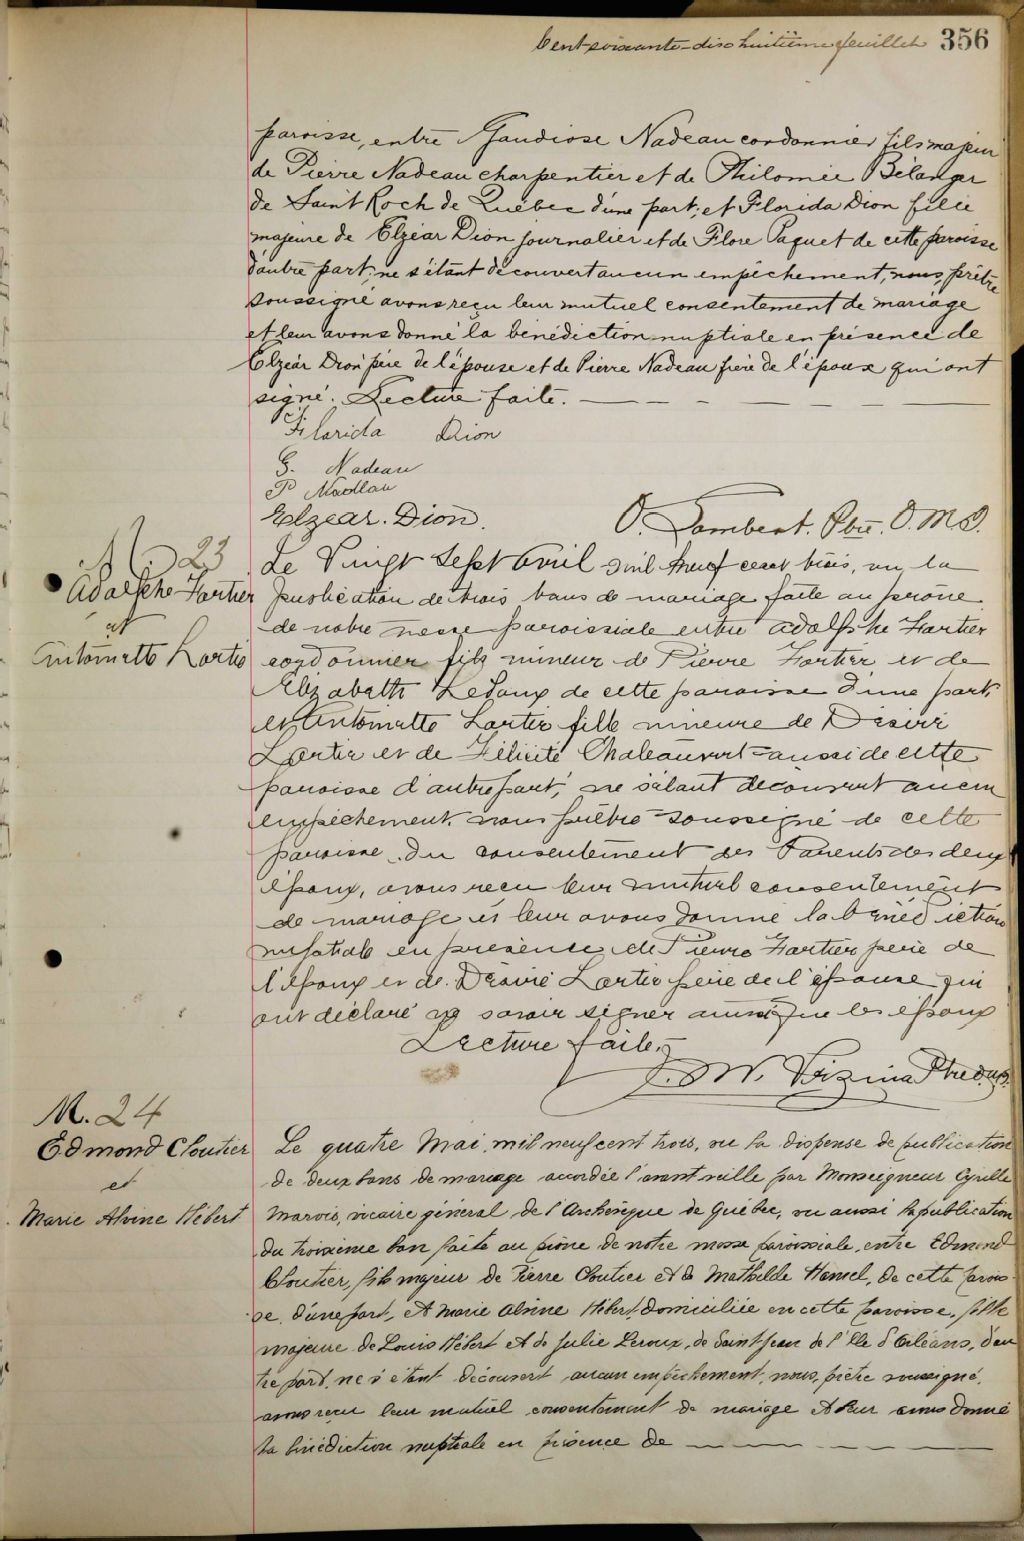 Cent soixante-dix huitième feuillet 356
paroisse, entre Gaudiose Nadeau cordonnier fils majeur
de Pierre Nadeau charpentier et de Philomée Bélanger
de Saint Roch de Québec d'une part; et Florida Dion fille
majeure de Elzéar Dion journalier et de Flore Paquet de cette paroisse
d'autre part; ne s'étant découvert aucun empêchement, nous, prêtre
soussigné avons reçu leur mutuel consentement de mariage
et leur avons donné la bénédiction nuptiale en présence de
Elzéar Dion père de l'épouse et de Pierre Nadeau frère de l'époux qui ont
signé. Lecture faite.
Florida Dion
G. Nadeau
P Nadeau
Elzear. Dion.
O. Lambert. Ptre. O.M.I.
M. 23
Adolphe Fortier
et
Antoinette Lortie
Le Vingt Sept Avril mil neuf cent trois, vu la
publication de trois bans de mariage faite au prône
de notre messe paroissiale entre Adolphe Fortier
cordonnier fils mineur de Pierre Fortier et de
Elizabeth de cette paroisse d'une part
et Antoinette Lortie fille mineure de Désiré
Lortie et de Félicité Chateauvert aussi de cette
paroisse d'autre part; ne s'étant découvert aucun
empêchement nous prêtre soussigné de cette
paroisse du consentement des Parents des deux
époux, avons reçu leur mutuel consentement
de mariage et leur avons donné la bénédiction
nuptiale en présence de Pierre Fortier père de
l'époux et de Désiré Lortie père de l'épouse qui
ont déclaré ne savoir signer ainsi que les époux
Lecture faite.
J. W. Vézina Ptre O.M.I.
M. 24
Edmond Cloutier
et
Marie Alvine Hébert
Le quatre Mai, mil neuf cent trois, vu la dispense de publication
de deux bans de mariage accordée l'avant veille par Monseigneur Cyrille
Marois, vicaire général de l'Archevêque de Québec, vu aussi la publication
du troisième ban faite au prône de notre messe paroissiale, entre Edmond
Cloutier, fils majeur de Pierre Cloutier et de Mathilde Hamel, de cette parois-
se, d'une part, et Marie Alvine Hébert, domiciliée en cette paroisse, fille
majeure de Louis Hébert et de Julie Leroux, de Saint Jean de l'Ile d'Orléans, d'au
tre part, ne s'étant découvert aucun empêchement, nous, prêtre soussigné,
avons reçu leur mutuel consentement de mariage et leur avons donné
la bénédiction nuptiale en présence de